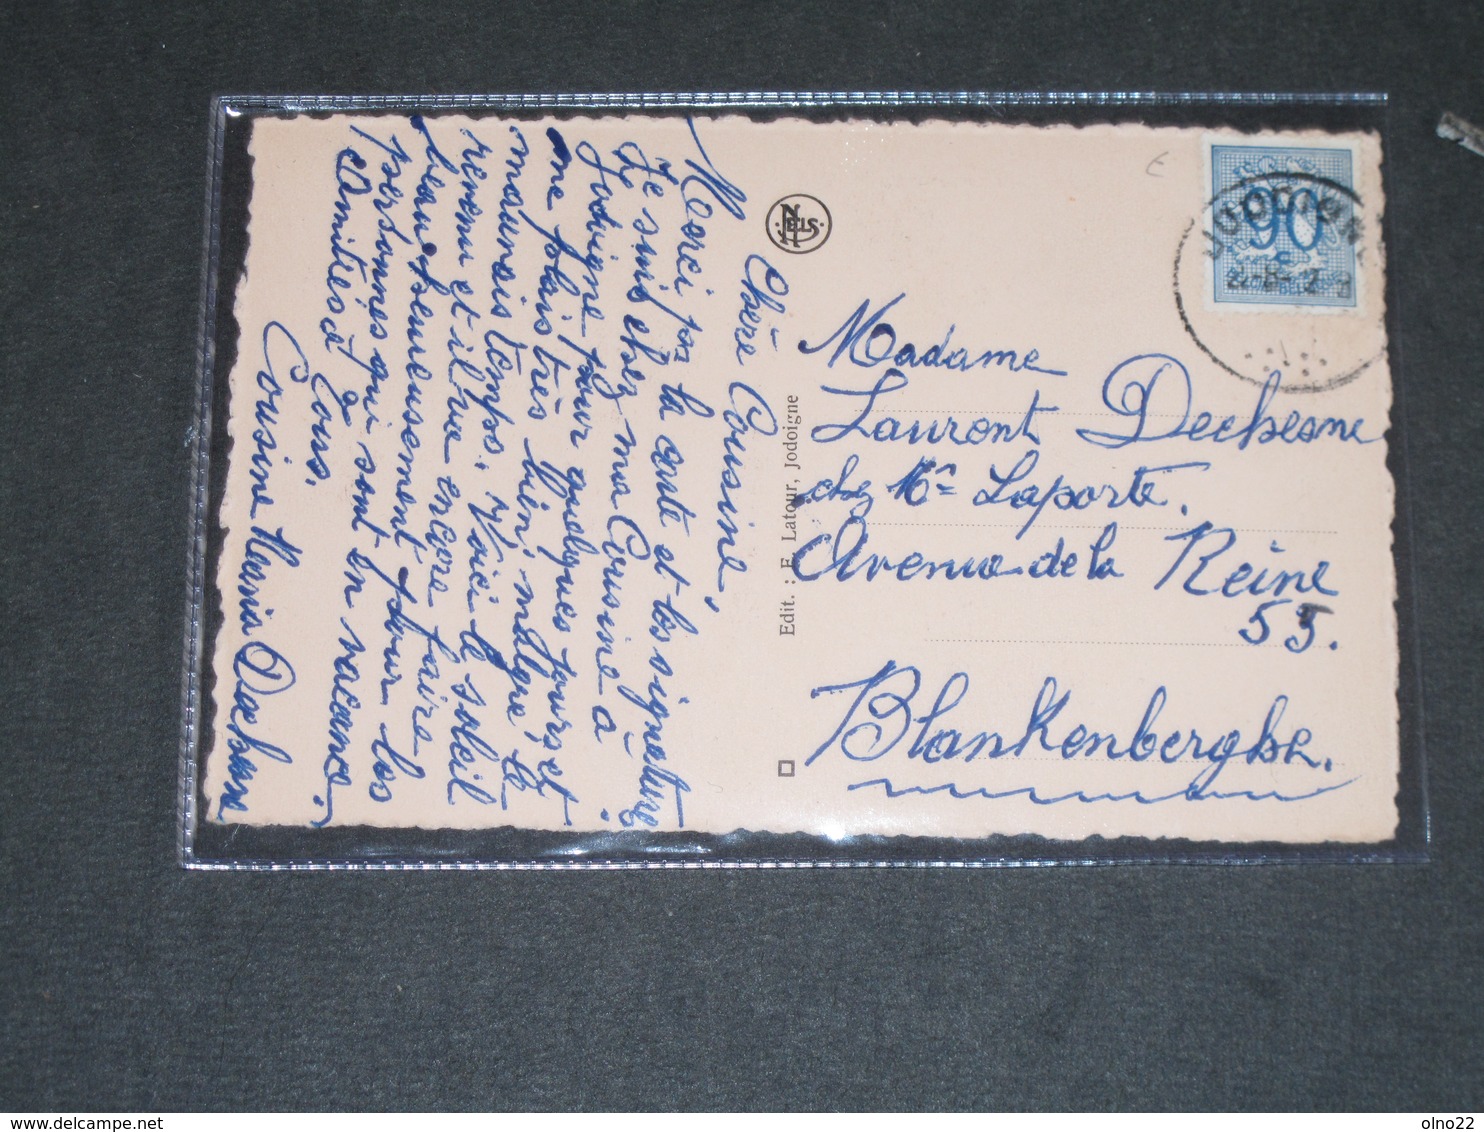 Chère Cousine,
Merci pr la carte et les signatures
Je suis chez ma Cousine à
Jodoigne pour quelques jours et
me plais très bien, malgré le
mauvais temps. Voici le soleil
revenu et il va encore faire
beau, heureusement pour les
personnes qui sont en vacances.
Amitiés à Tous.
Cousine Maria Dechesne
NELS
Edit. : E. Latour, Jodoigne
90
c
JODOIGNE
Madame
Laurent Dechesne
chez Me Laporte.
Avenue de la Reine
55.
Blankenberghe.
olno22